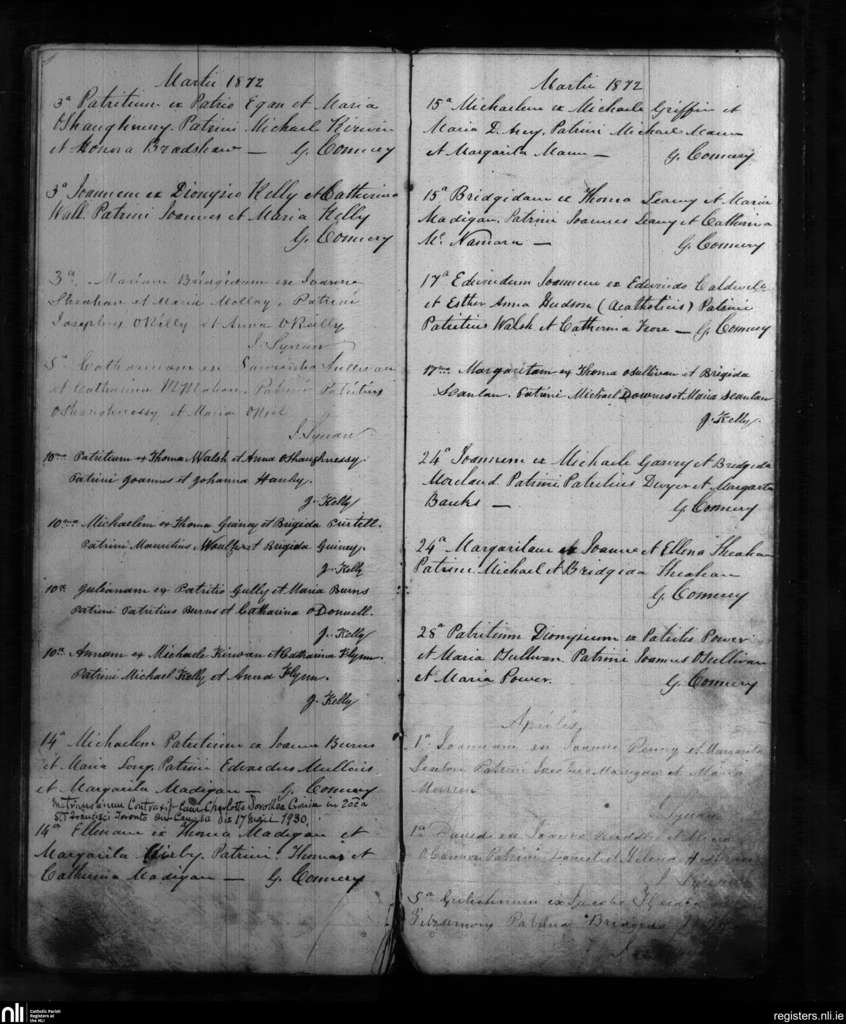 Martii 1872
3ª Patritium ex Patrio Egan et Maria
OShaughnessy. Patrini Michael Kirwin
et Honora Bradshaw — G. Connery
3ª Joannem ex Dionysio Kelly et Catherina
Wall Patrini Joannes et Maria Kelly
G. Connery
3ª Mariam Bridgidam ex Joanne
Sheahan et Maria Molloy. Patrini
Josephus OReilly et Anna OReilly
J. Synan
5ª Catharinam ex Sullivan
et Catharina McMahon. Patrini Patritius
OShaughnessy et Maria ONeil
J. Synan
10ma Patritium ex Thoma Walsh et Anna OShaughnessy.
Patrini Joannes et Johanna Hanly.
J. Kelly
10ma Michaelem ex Thoma Guiney et Brigida
Patrini Mauritius et Brigida Guiney.
J. Kelly
10ma Julianam ex Patritio Gully et Maria Burns
Patrini Patritius Burns et Catharina ODonnell.
J. Kelly
10ma Annam ex Michaele Kirwan et Catharina Flynn.
Patrini Michael Kelly et Anna Flynn.
J. Kelly
14ª Michaelem Patritium ex Joanne Burns
et Maria Long. Patrini Edvardus
et Margarita Madigan — G. Connery
Matrimonium Contraxit cum Charlotte Dorothea in
S.T Francisci Toronto die 17 1930.
14ª Ellenam ex Thoma Madigan et
Margarita Kirby. Patrini Thomas et
Catherina Madigan — G. Connery
Martii 1872
15ª Michaelem ex Michaele Griffin et
Maria Patrini Michael Mann
et Margarita Mann — G. Connery
15ª Bridgidam ex Thoma Leamy et Maria
Madigan. Patrini Joannes Leamy et Catherina
Mc Namara — G. Connery
17ª Edvardum Joannem ex Edvardo Caldwell
et Esther Anna Hudson (Acatholicis) Patrini
Patritius Walsh et Catherina — G. Connery
17ma Margaritam ex Thoma OSullivan et Brigida
Scanlan. Patrini Michael Downes et Maria Scanlan
J. Kelly.
24ª Joannem ex Michaele Garvey et Bridgida
Moreland Patrini Patritius Dwyer et Margarita
Banks — G. Connery
24ª Margaritam ex Joanne et Ellena Sheahan
Patrini Michael et Bridgida Sheahan
G. Connery
28ª Patritium Dionysium ex Patritio Power
et Maria OSullivan. Patrini Joannes OSullivan
et Maria Power. G. Connery
Aprilis
1ª Joannam ex Joanne Penny et Margarita
Patrini Madigan et Maria
J. Synan
1ª David ex Joanne et
OConnor Patrini et Helena
J. Synan
5ª ex Jacobo
Fitzsimons Patrina Bridgida
NLI
Catholic Parish
Registers at
the NLI
registers.nli.ie